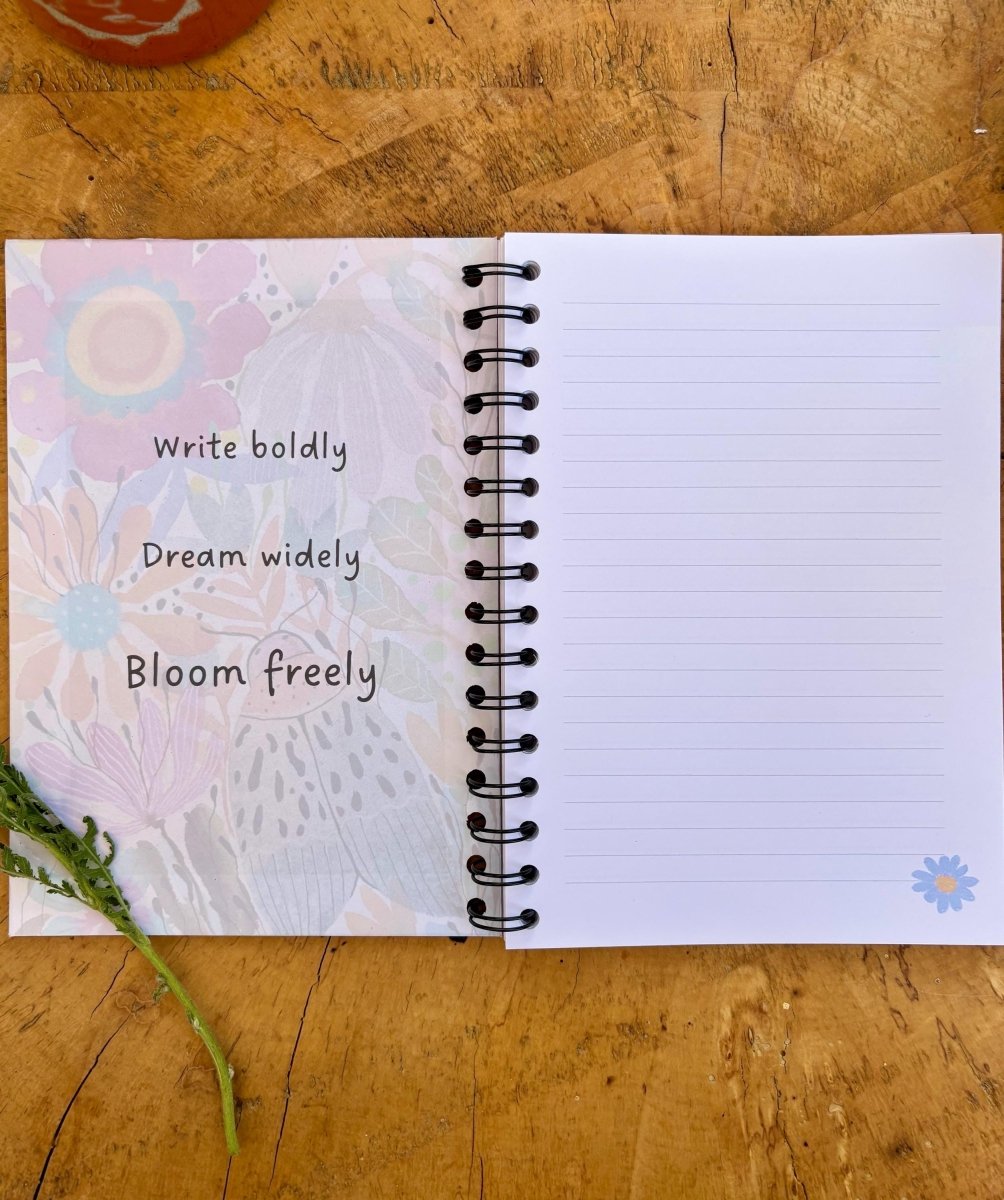 Write boldly
Dream widely
Bloom freely